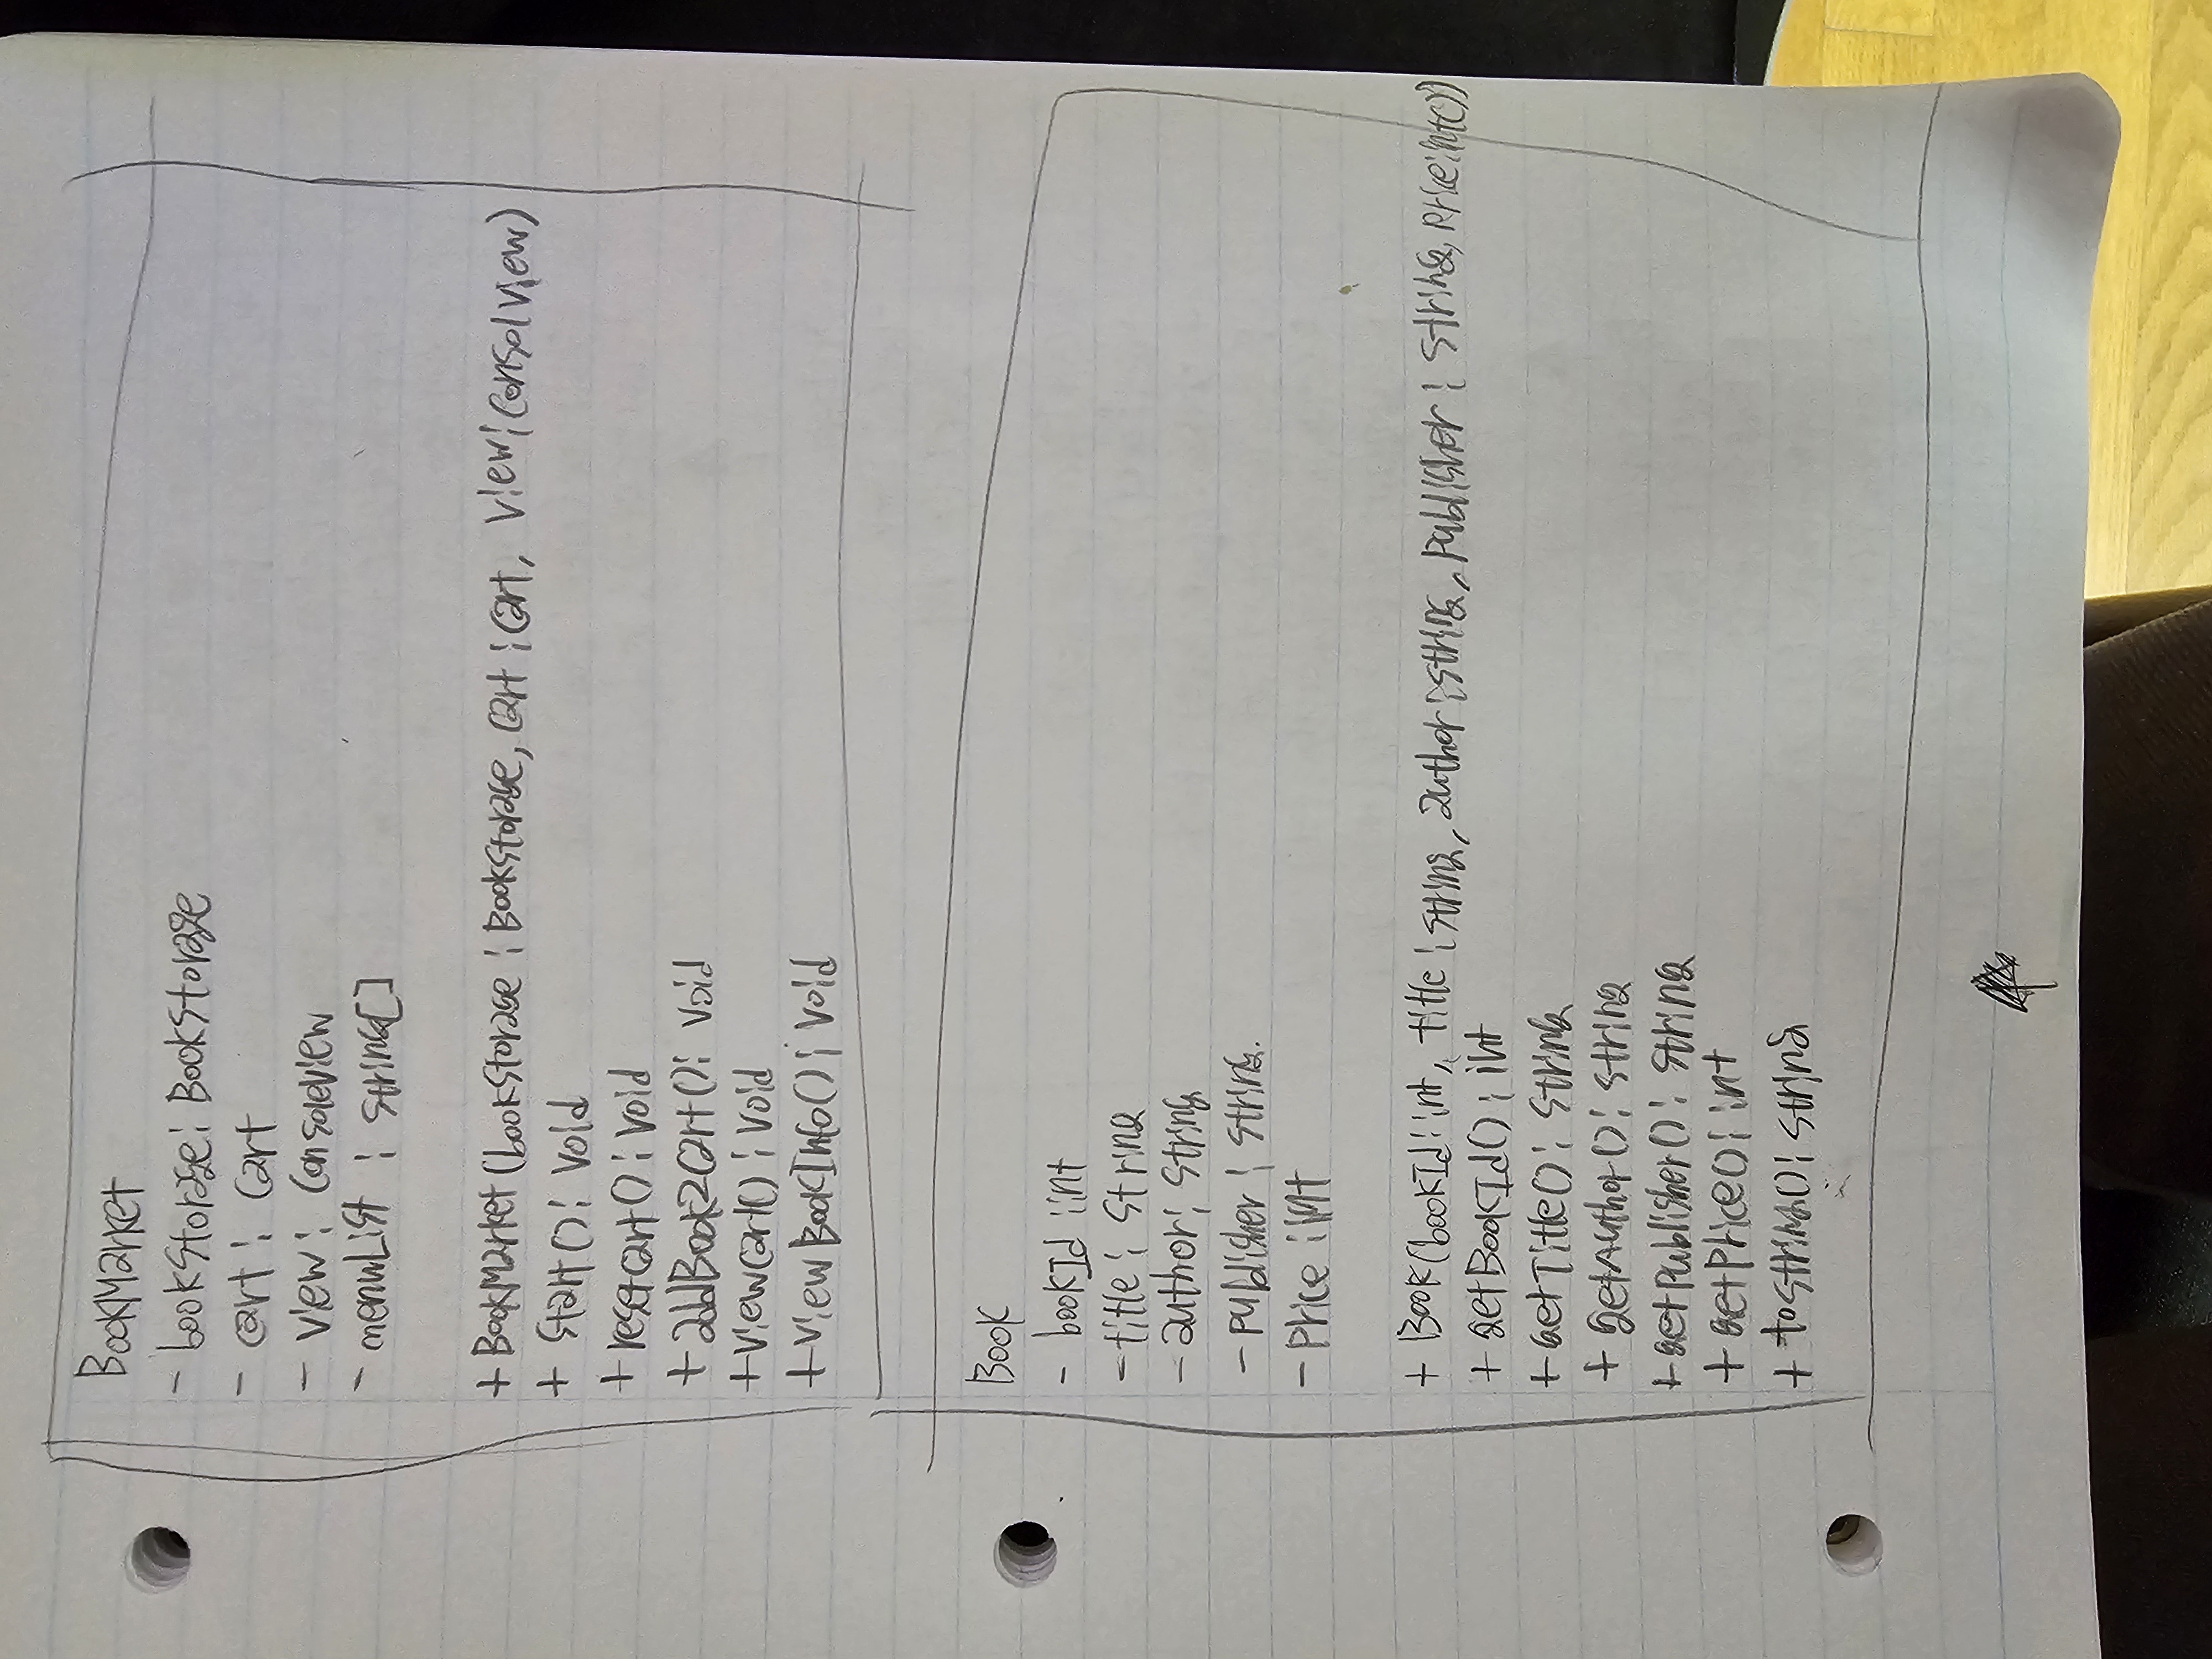 BookMarket
- bookStorage: BookStorage
- cart : Cart
- view: ConsoleView
- menuList : String[]
+ BookMarket (bookStorage : BookStorage, cart : Cart, view : ConsolView)
+ start(): void
+ resetCart() : void
+ addBook2Cart(): void
+ viewCart() : void
+ viewBookInfo() : void
Book
- bookId : int
- title : String
- author : String
- publisher : String.
- price : int
+ Book(bookId : int, title : string, author : string, publisher : string, price : int())
+ getBookId() : int
+ getTitle() : string
+ getAuthor() : string
+ getPublisher() : string
+ getPrice() : int
+ toString() : string